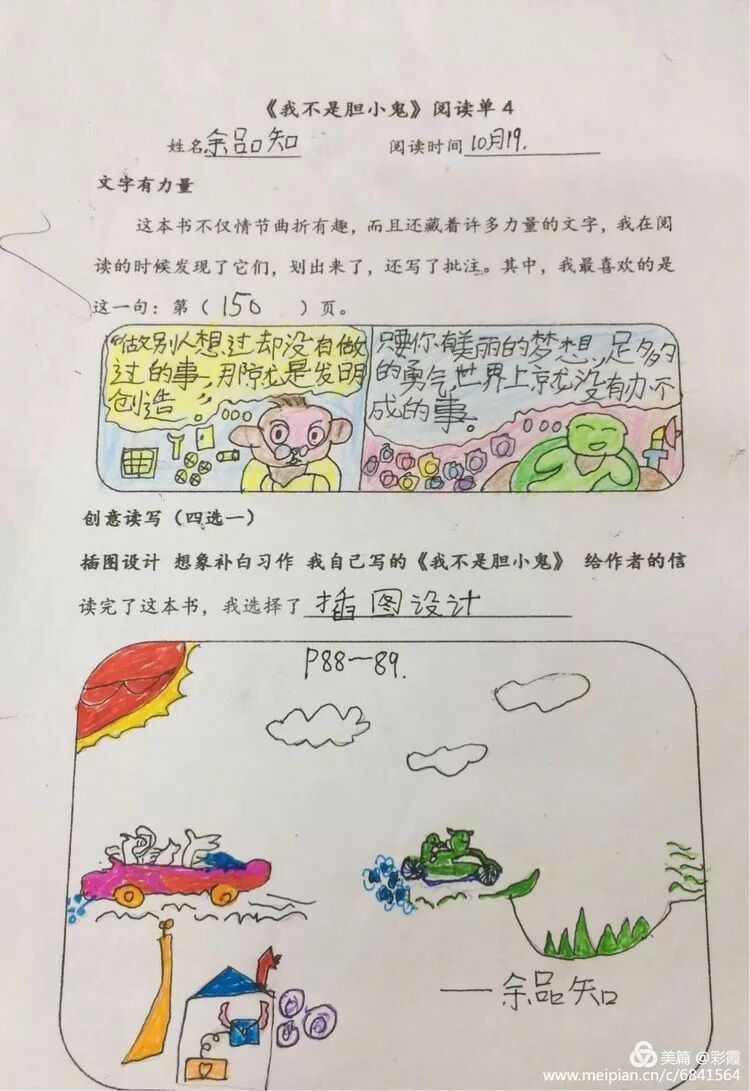 《我不是胆小鬼》阅读单 4
姓名余品知 阅读时间10月19.
文字有力量
这本书不仅情节曲折有趣，而且还藏着许多力量的文字，我在阅
读的时候发现了它们，划出来了，还写了批注。其中，我最喜欢的是
这一句：第（150）页。
“做别人想过却没有做
过的事，那就是发明
创造。”
只要你有美丽的梦想，足够
的勇气，世界上就没有办不
成的事。
创意读写（四选一）
插图设计 想象补白习作 我自己写的《我不是胆小鬼》 给作者的信
读完了这本书，我选择了插图设计
P88—89.
——余品知
美篇 @彩霞
www.meipian.cn/c/6841564